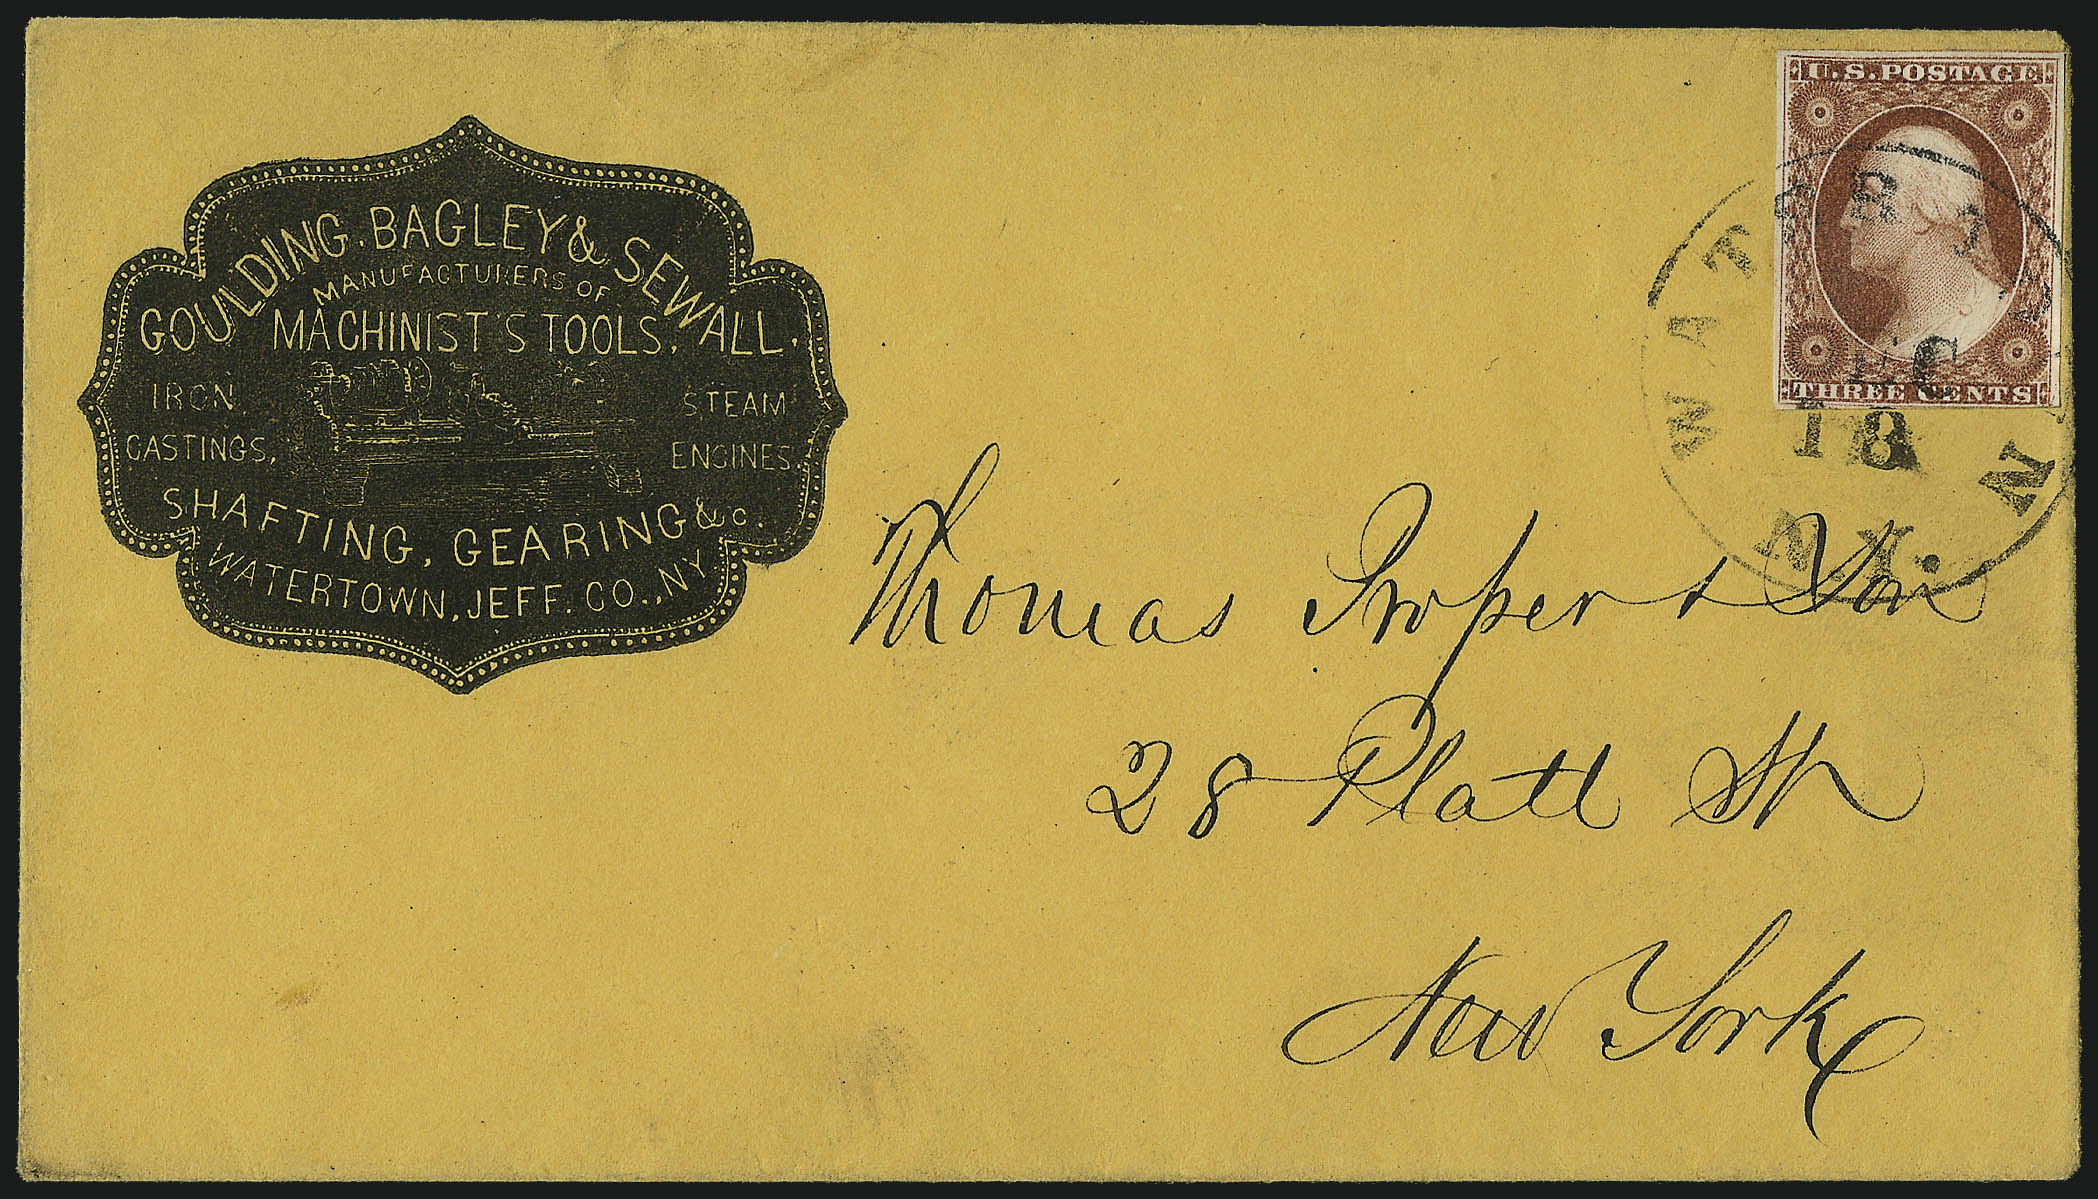 GOULDING, BAGLEY & SEWALL,
MANUFACTURERS OF
MACHINIST'S TOOLS,
IRON
CASTINGS,
STEAM
ENGINES,
SHAFTING, GEARING &c.
WATERTOWN, JEFF. CO., N.Y.
U.S. POSTAGE
THREE CENTS
WATERTOWN
DEC
18
N.Y.
Thomas Proper & Son
28 Platt St
New York